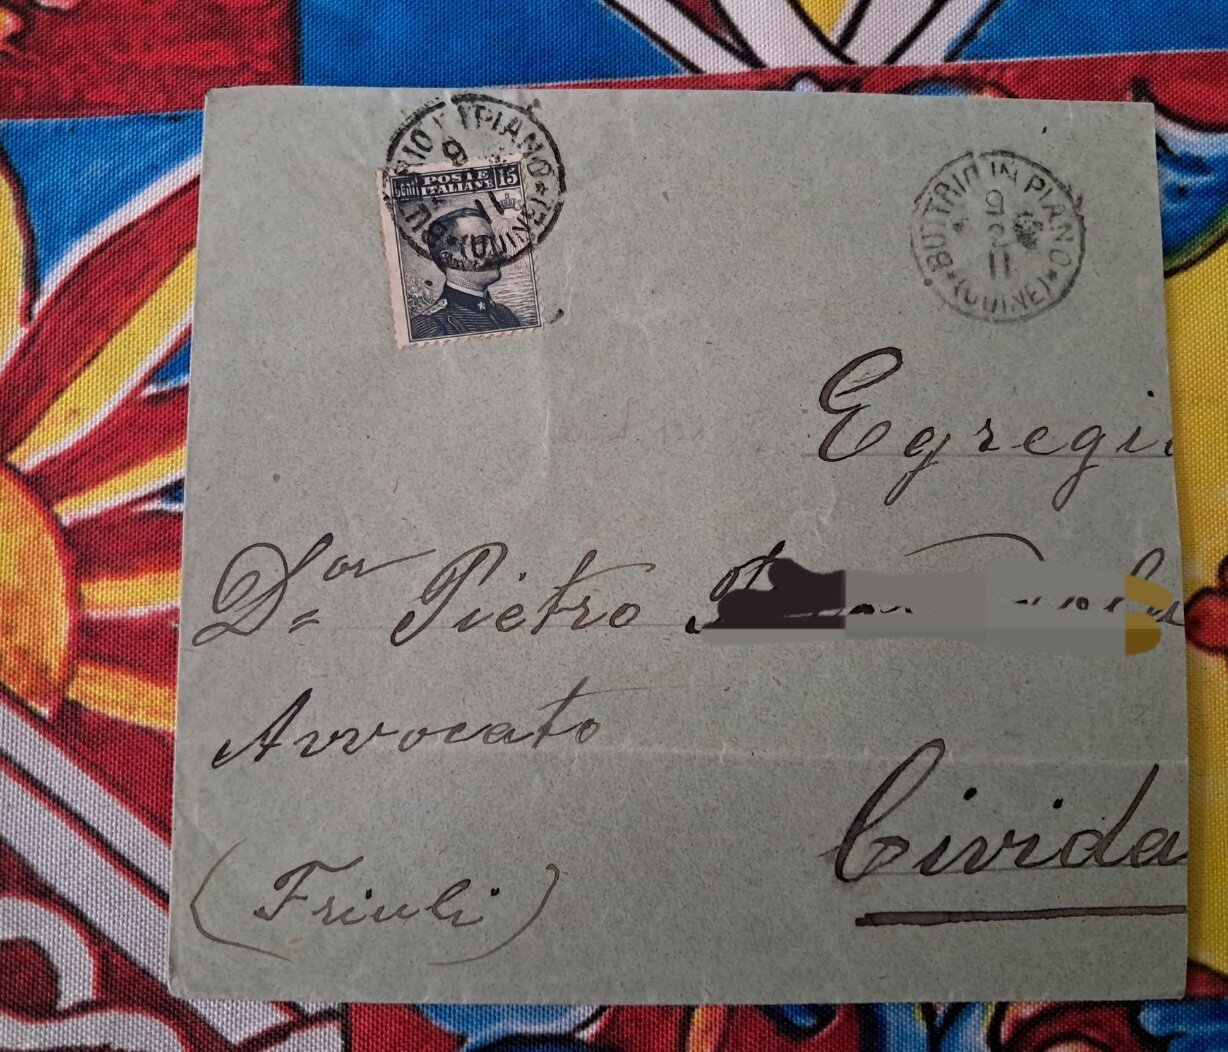 BUTTRIO IN PIANO
9
11
(UDINE)
Cent. POSTE ITALIANE 15
BUTTRIO IN PIANO
9
11
(UDINE)
Egregi
Dor Pietro
Avvocato
Civida
(Friuli)